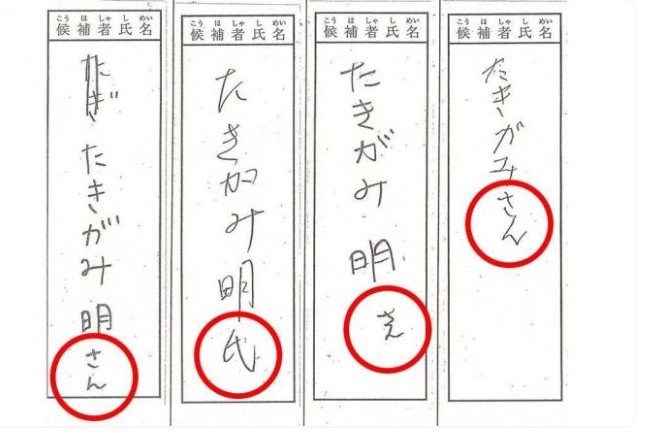 こうほしゃしめい
候補者氏名
たきがみ明さん
こうほしゃしめい
候補者氏名
たきかみ明氏
こうほしゃしめい
候補者氏名
たきがみ明さん
こうほしゃしめい
候補者氏名
たきがみさん